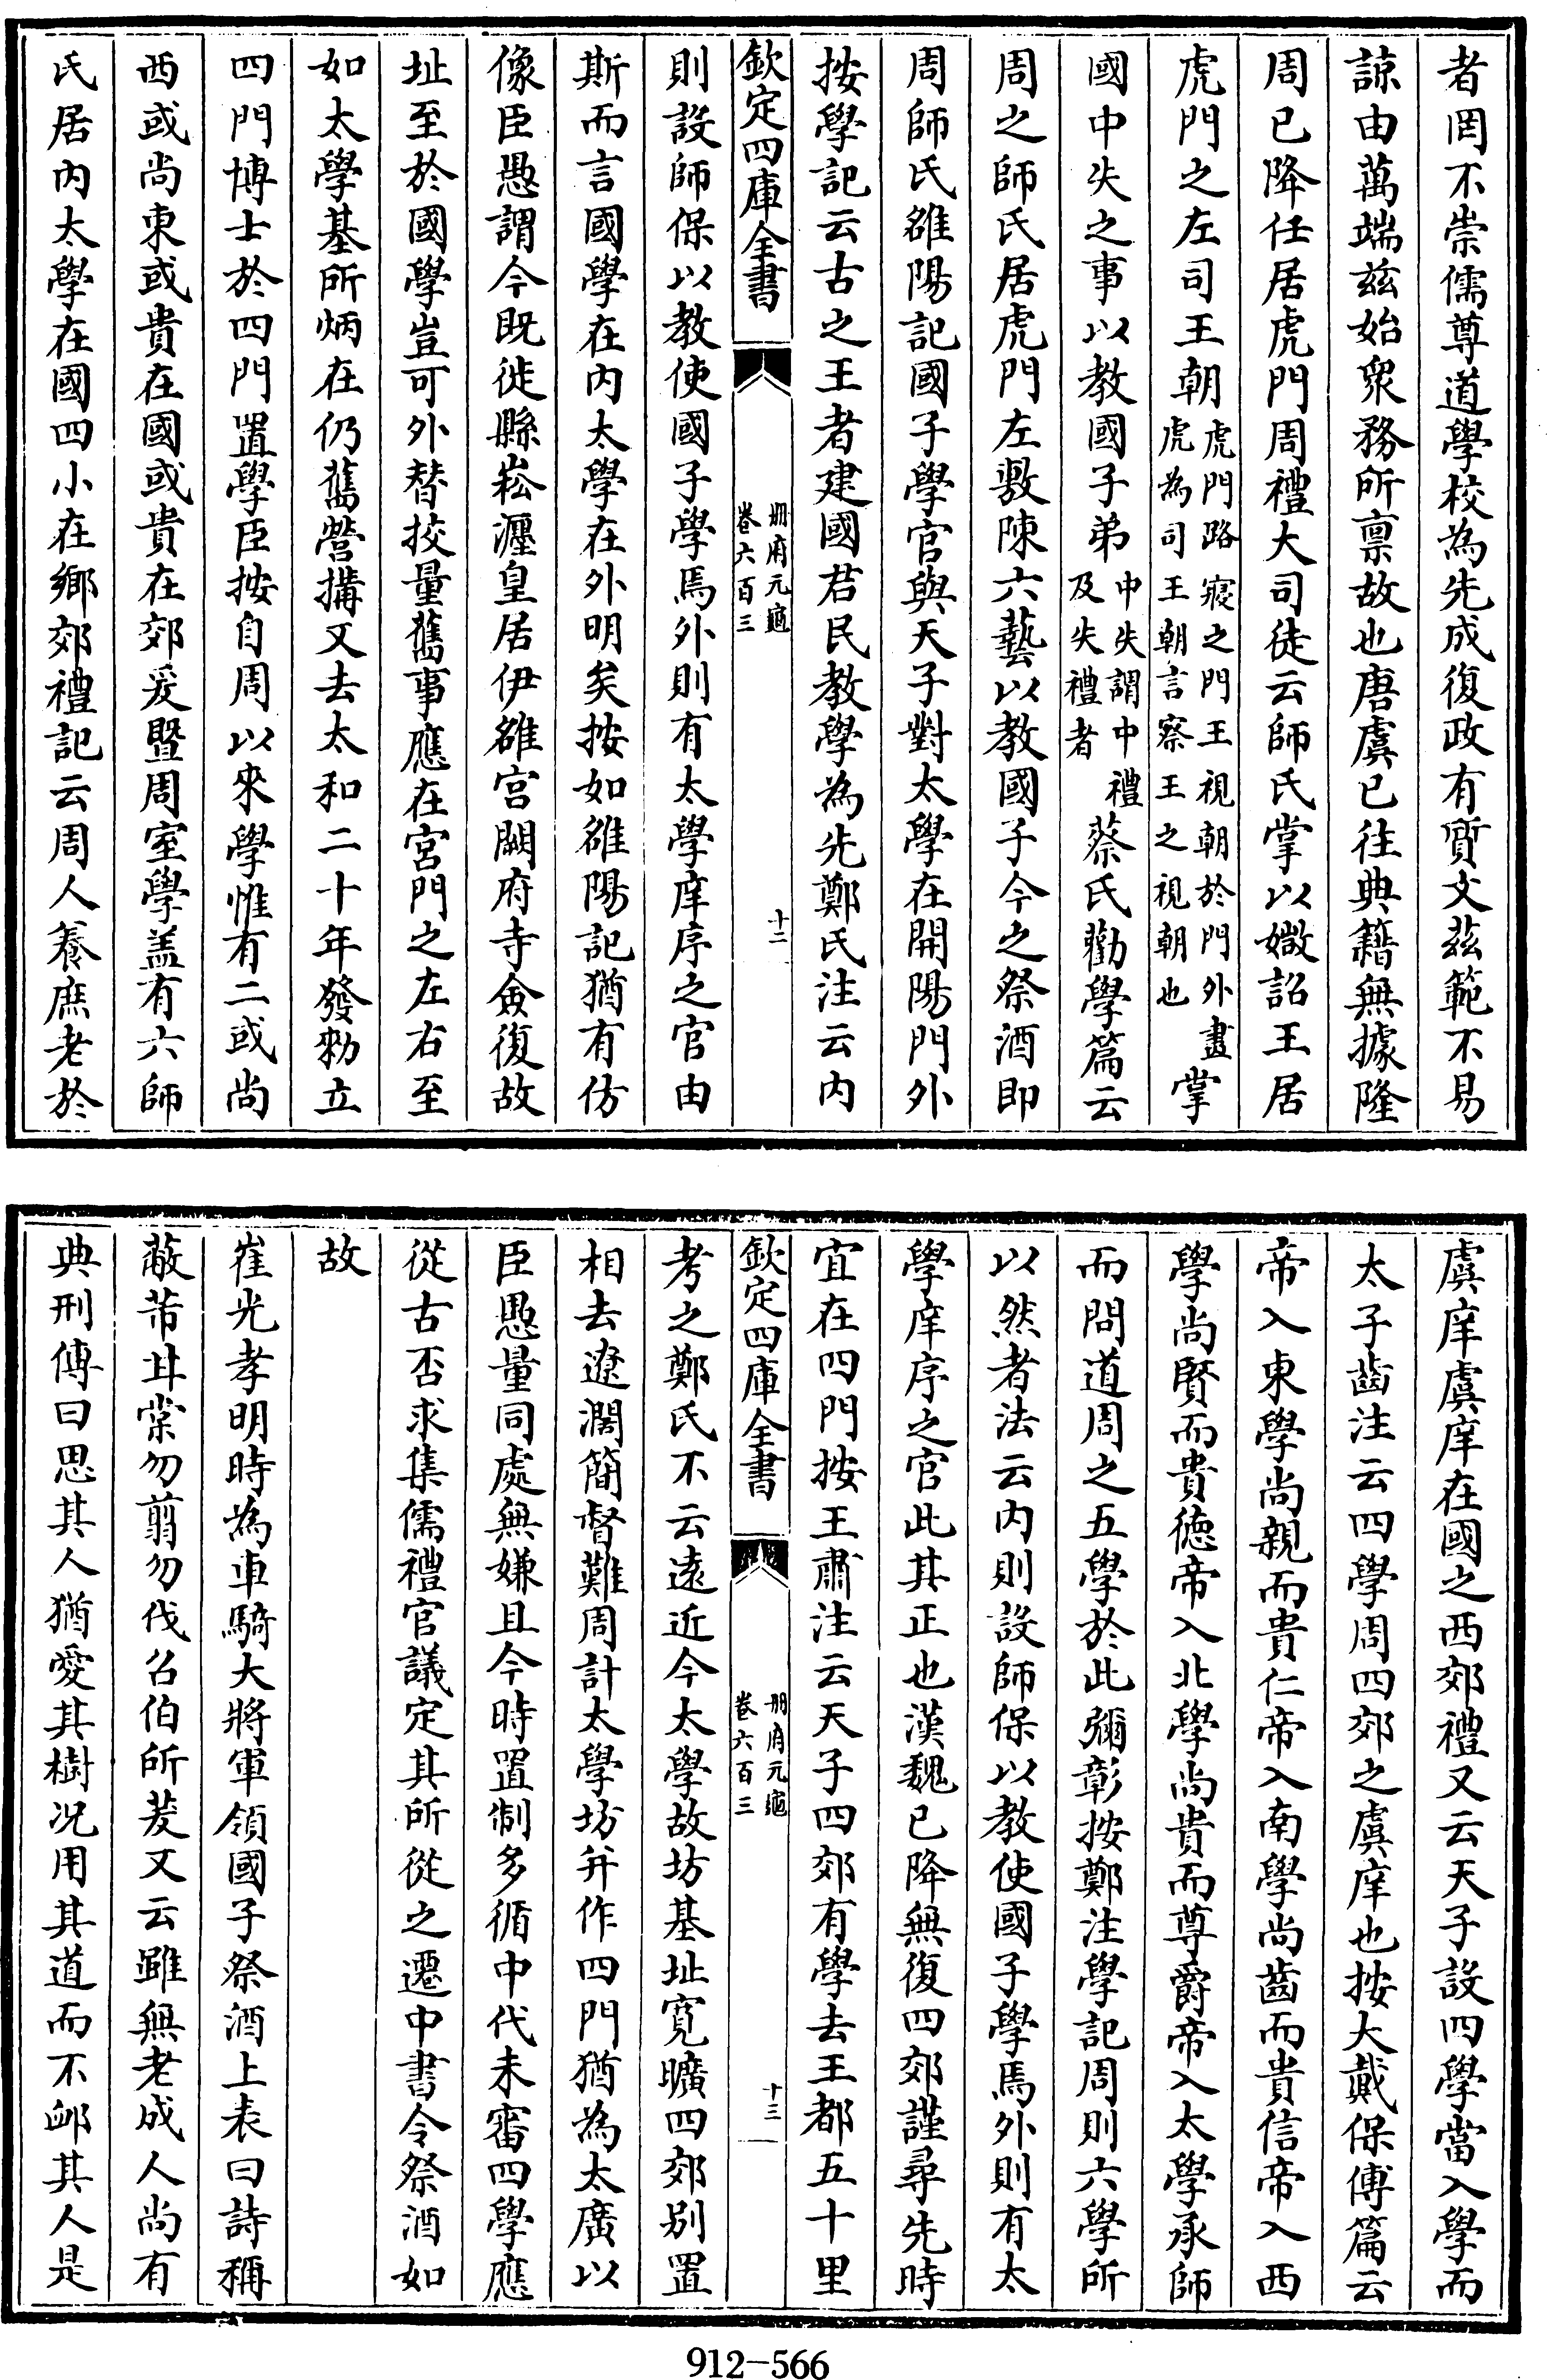 者罔不崇儒尊道學校為先成復政有質文茲範不易
諒由萬端兹始衆務所禀故也唐虞已往典籍無據隆
周已降任居虎門周禮大司徒云師氏掌以媺詔王居
虎門之左司王朝虎門路寢之門王視朝於門外畫虎為司王朝言察王之視朝也掌
國中失之事以教國子弟中失謂中禮及失禮者蔡氏勸學篇云
周之師氏居虎門左敷陳六藝以教國子今之祭酒即
周師氏雒陽記國子學官與天子對太學在開陽門外
按學記云古之王者建國君民教學為先鄭氏注云内
欽定四庫全書 册府元龜 卷六百三 十二
則設師保以教使國子學焉外則有太學庠序之官由
斯而言國學在内太學在外明矣按如雒陽記猶有仿
像臣愚謂今既徙縣崧瀍皇居伊雒宫闕府寺僉復故
址至於國學豈可外替挍量舊事應在宫門之左右至
如太學基所炳在仍舊營搆又去太和二十年發勑立
四門博士於四門置學臣按自周以來學惟有二或尚
西或尚東或貴在國或貴在郊爰暨周室學盖有六師
氏居内太學在國四小在鄉郊禮記云周人養庶老於
虞庠虞庠在國之西郊禮又云天子設四學當入學而
太子齒注云四學周四郊之虞庠也按大戴保傅篇云
帝入東學尚親而貴仁帝入南學尚齒而貴信帝入西
學尚賢而貴徳帝入北學尚貴而尊爵帝入太學承師
而問道周之五學於此彌彰按鄭注學記周則六學所
以然者法云内則設師保以教使國子學焉外則有太
學庠序之官此其正也漢魏已降無復四郊謹尋先時
宜在四門按王肅注云天子四郊有學去王都五十里
欽定四庫全書 册府元龜 卷六百三 十三
考之鄭氏不云遠近今太學故坊基址寛曠四郊别置
相去遼濶簡督難周計太學坊并作四門猶為太廣以
臣愚量同處無嫌且今時置制多循中代未審四學應
從古否求集儒禮官議定其所從之遷中書令祭酒如
故
崔光孝明時為車騎大將軍領國子祭酒上表曰詩稱
蔽芾甘棠勿翦勿伐召伯所茇又云雖無老成人尚有
典刑傳曰思其人猶愛其樹况用其道而不邮其人是
912-566